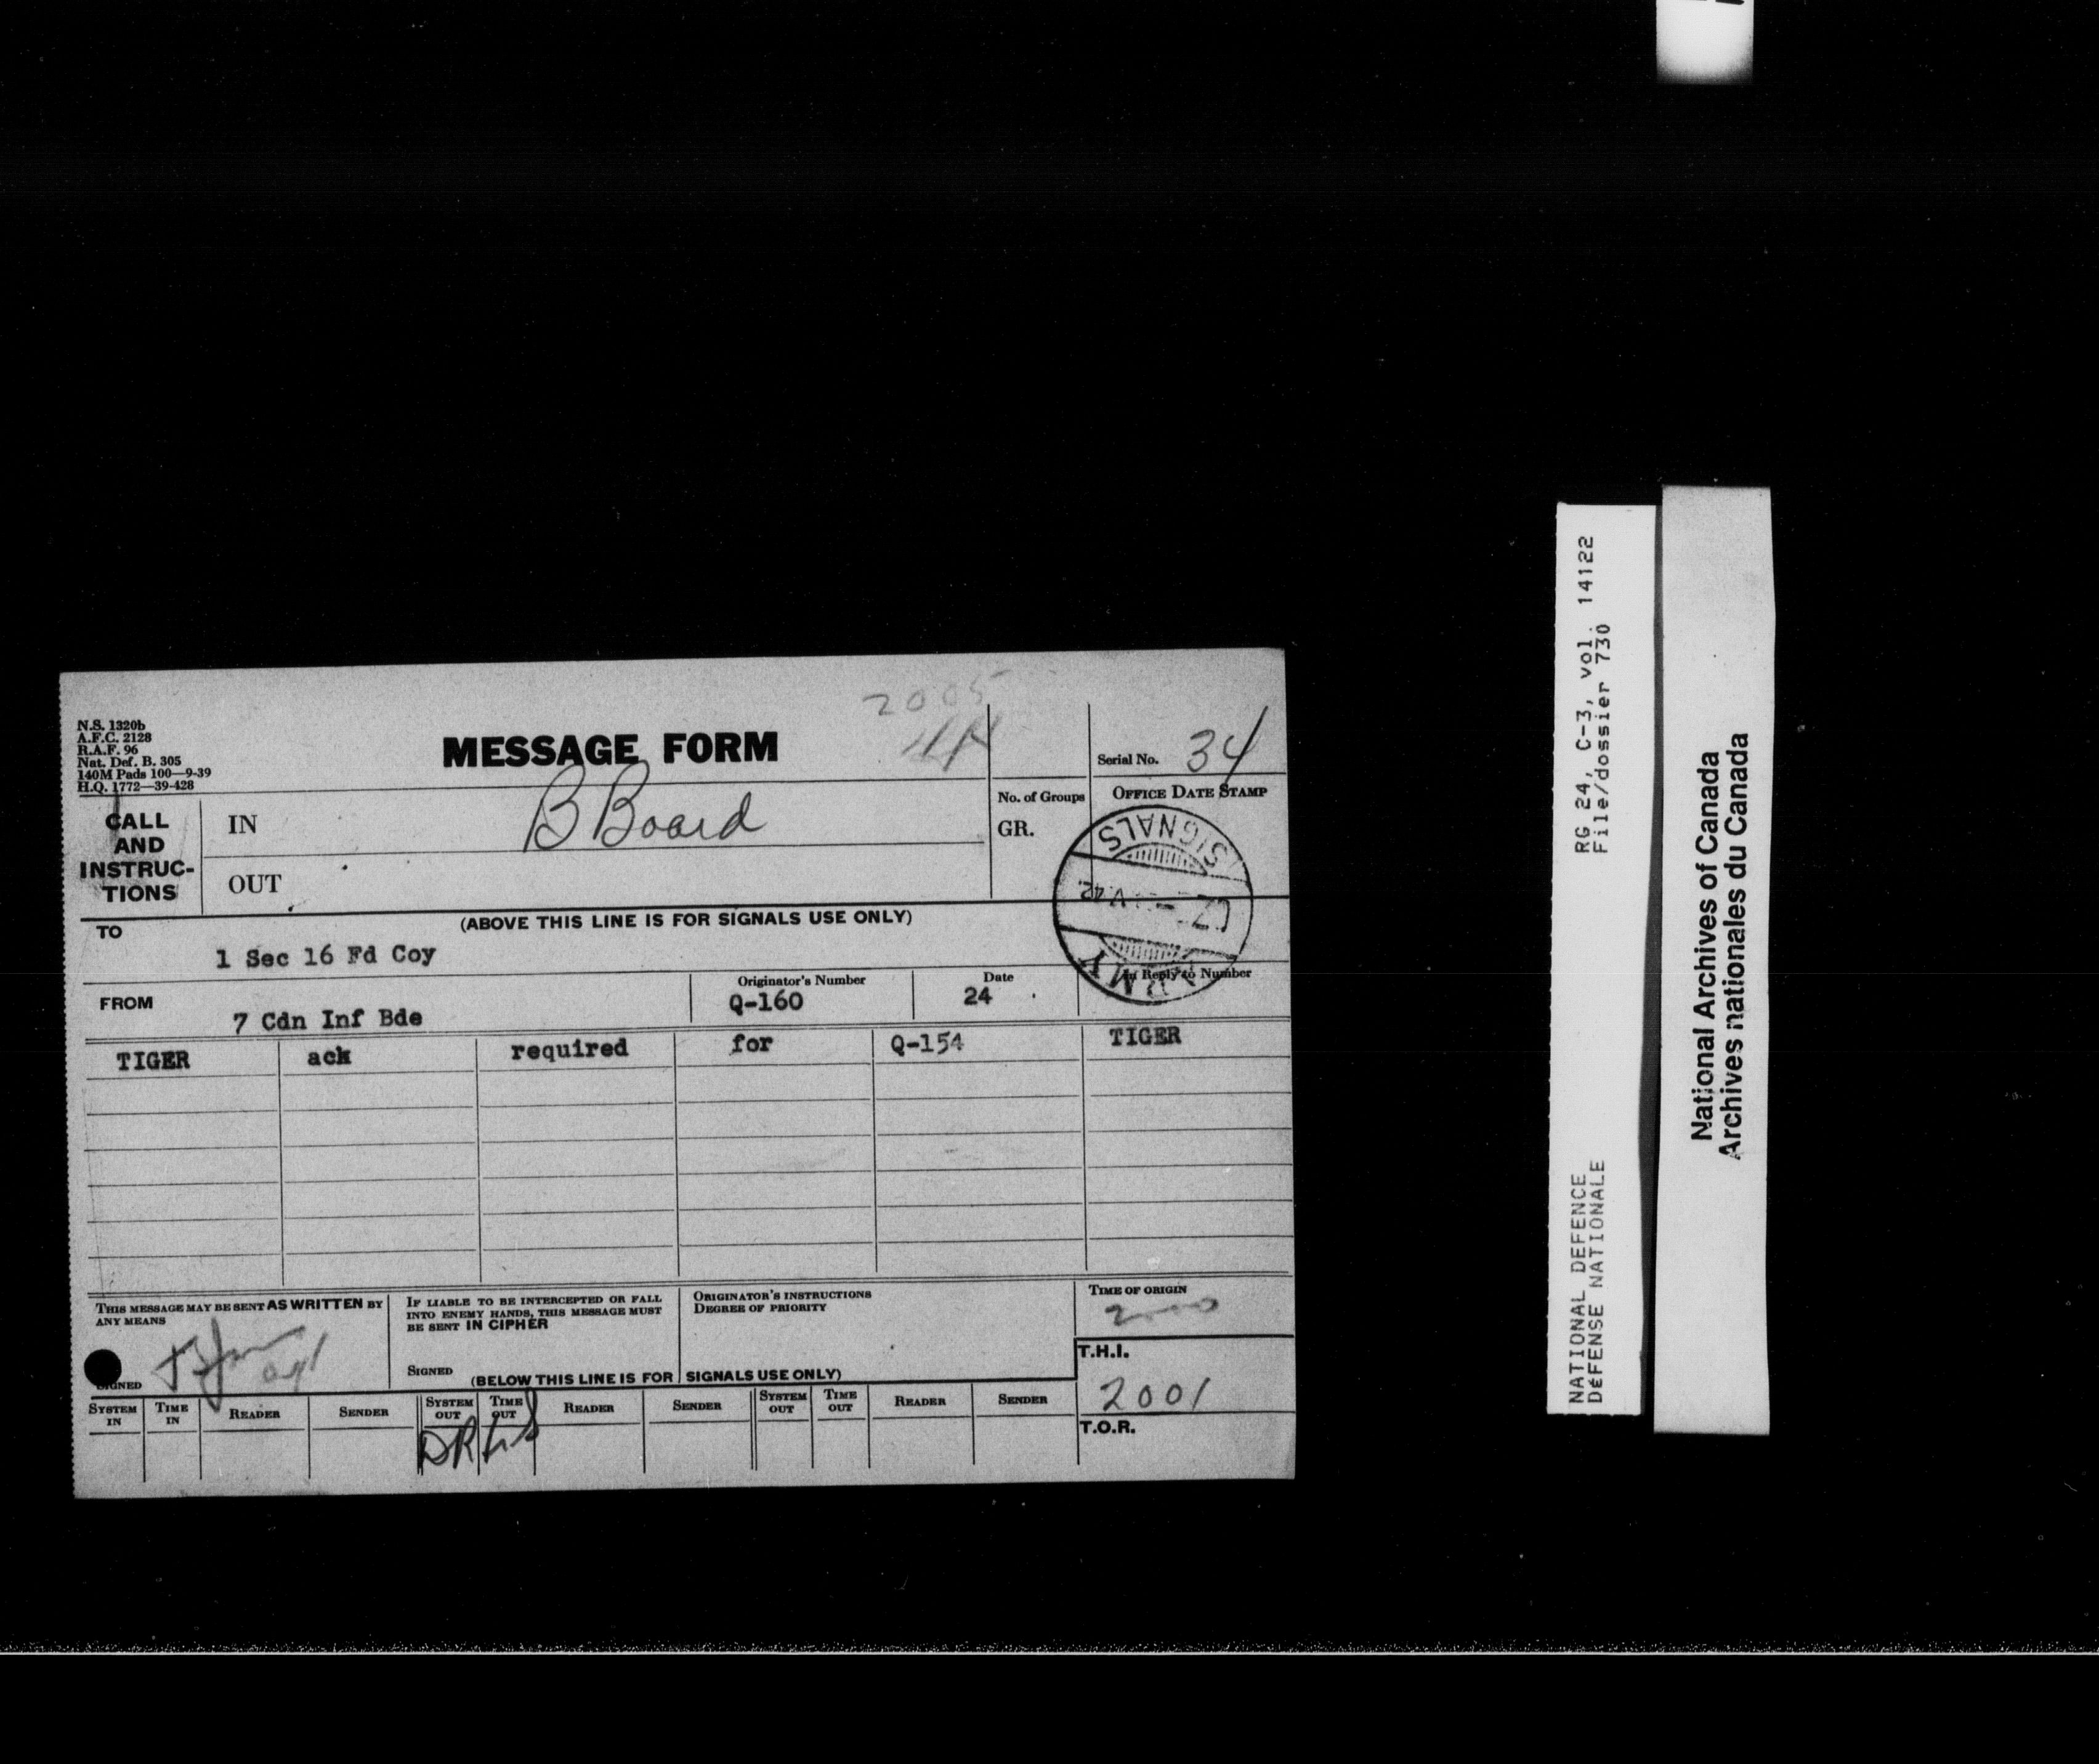 N.S. 1320b
A.F.C. 2128
R.A.F. 96
Nat. Def. B. 305
140M Pads 100—9-39
H.Q. 1772—39-428
MESSAGE FORM
2005
Serial No. 34
CALL AND INSTRUC-TIONS
IN
B Board
OUT
No. of Groups
GR.
OFFICE DATE STAMP
SIGNALS
ARMY
(ABOVE THIS LINE IS FOR SIGNALS USE ONLY)
TO
1 Sec 16 Fd Coy
FROM
7 Cdn Inf Bde
Originator's Number
Q-160
Date
24
In Reply to Number
TIGER ack required for Q-154 TIGER
THIS MESSAGE MAY BE SENT AS WRITTEN BY
ANY MEANS
SIGNED
IF LIABLE TO BE INTERCEPTED OR FALL
INTO ENEMY HANDS, THIS MESSAGE MUST
BE SENT IN CIPHER
SIGNED
ORIGINATOR'S INSTRUCTIONS
DEGREE OF PRIORITY
TIME OF ORIGIN
2000
(BELOW THIS LINE IS FOR SIGNALS USE ONLY)
T.H.I.
2001
T.O.R.
SYSTEM IN TIME IN READER SENDER SYSTEM OUT TIME OUT READER SENDER SYSTEM OUT TIME OUT READER SENDER
DRLS
RG 24, C-3, vol. 14122
File/dossier 730
NATIONAL DEFENCE
DÉFENSE NATIONALE
National Archives of Canada
Archives nationales du Canada